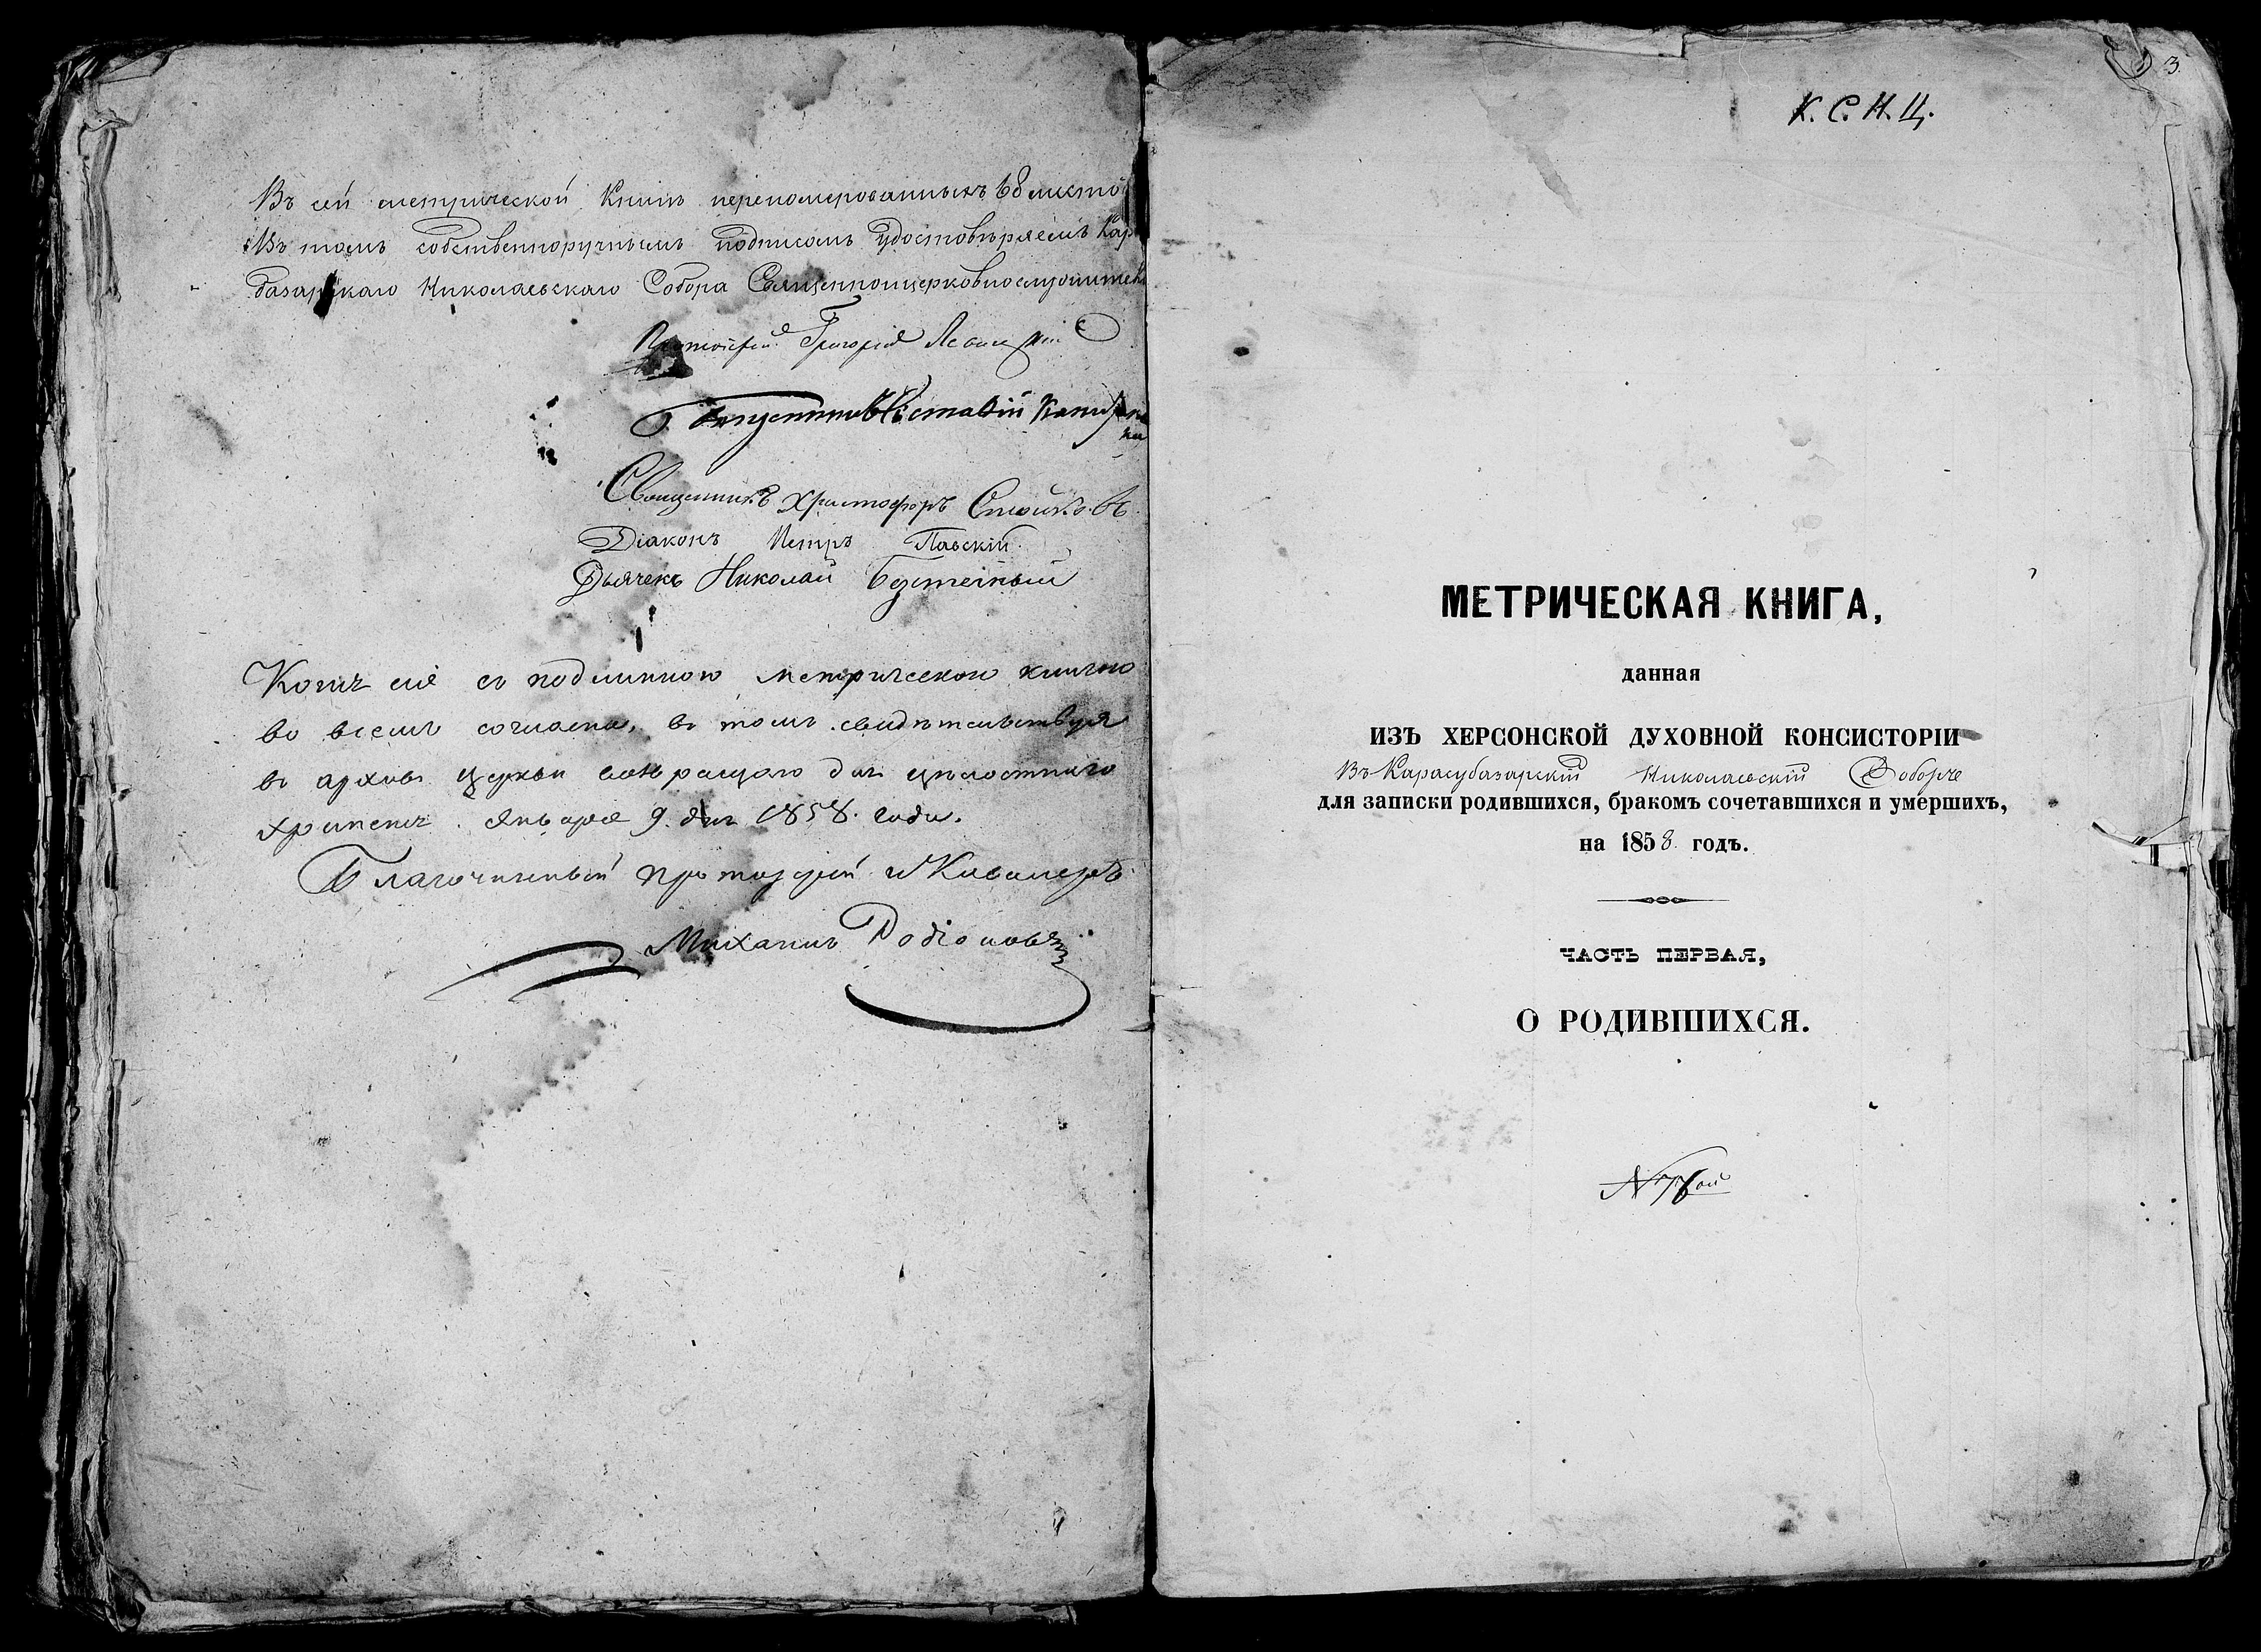 Въ сей метрической Книги перепомерованныхъ
въ томъ собственноручнымъ подписомъ удостовѣряемъ Кар
базарскаго Николаевскаго Собора Священноцерковнослужите
Протоіерей Григорій
Священникъ Христофоръ Стойковъ
Діаконъ Петръ Павскій.
Дьячекъ Николай
Копія сія съ подлинною метрическою книгою
во всемъ согласна, въ томъ свидѣтельствуя
въ архивъ церкви возвращаю для цѣлостнаго
храненія. января 9. дня 1858. года.
Благочинный протоіерей и Кавалеръ
Михаилъ Родіоновъ
3.
К. С. Н. Ц.
МЕТРИЧЕСКАЯ КНИГА,
данная
ИЗЪ ХЕРСОНСКОЙ ДУХОВНОЙ КОНСИСТОРІИ
Въ Карасубазарскій Николаевскій Соборъ
для записки родившихся, бракомъ сочетавшихся и умершихъ,
на 1858 годъ.
ЧАСТЬ ПЕРВАЯ,
О РОДИВШИХСЯ.